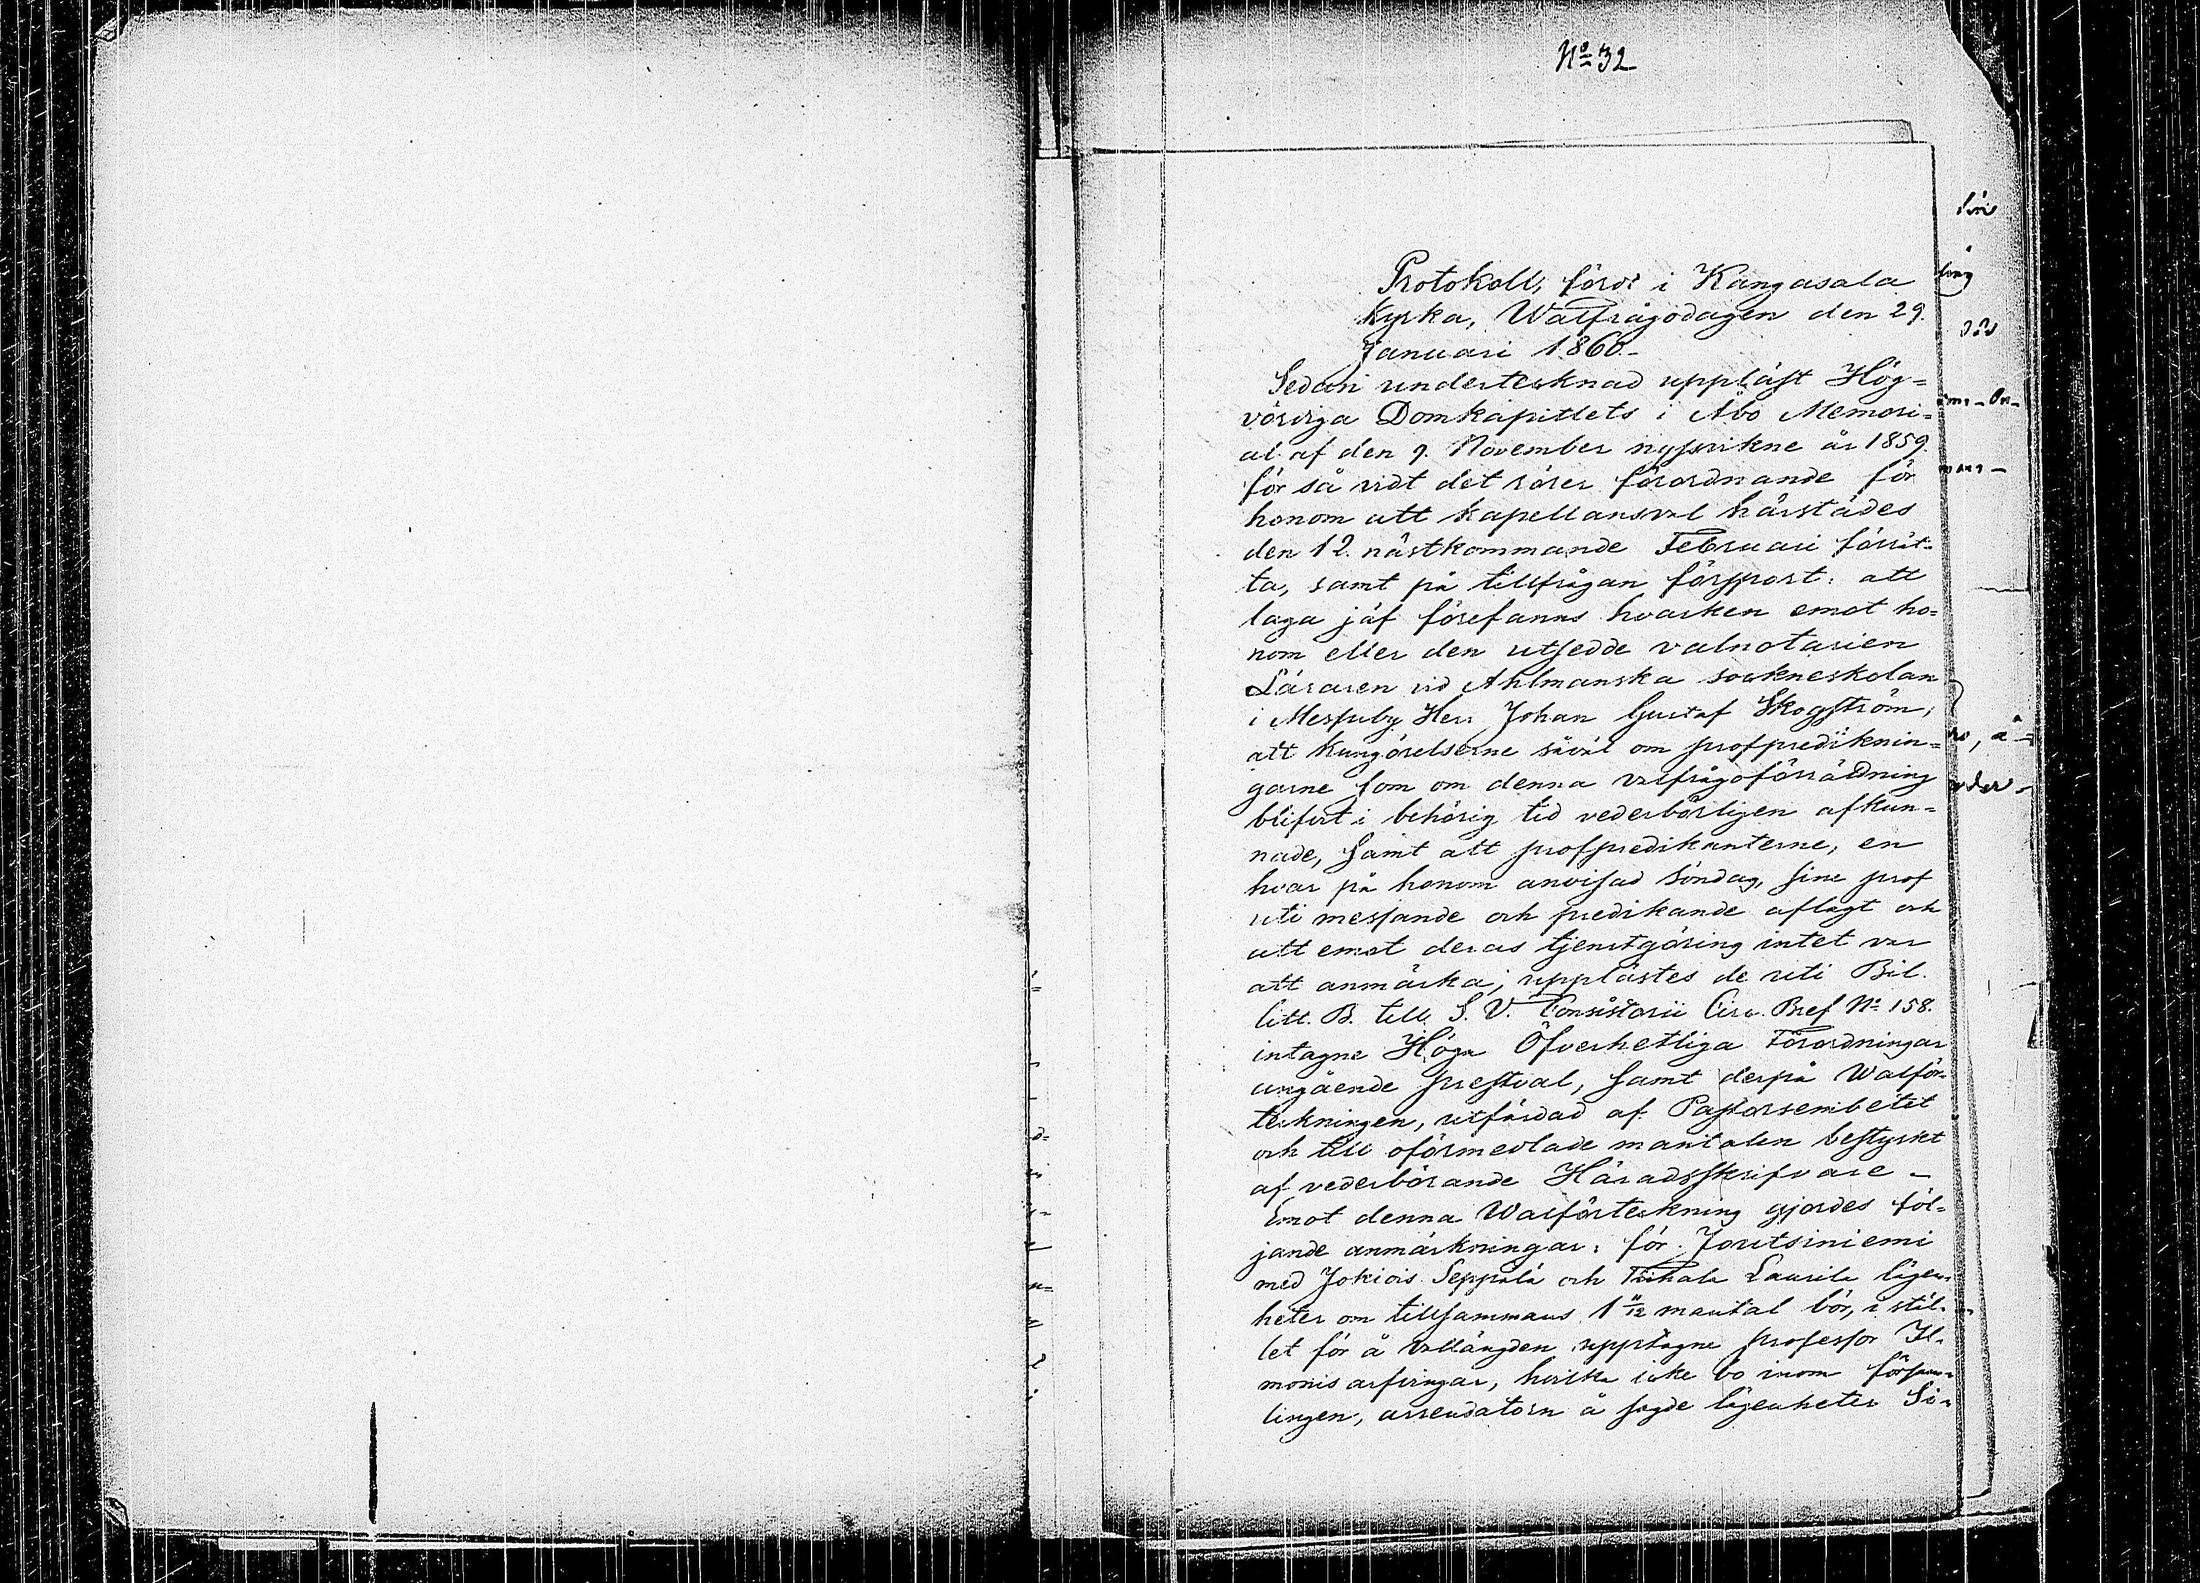 No 32
Protokoll, fördt i Kangasala
Kyrka, Walfrågodagen den 29.
Januari 1860.-
Sedan undertecknad uppläst Hög=
vördiga Domkapitlets i Åbo Memori=
al af den 9. November nyssvikne år 1859.
för så vidt det rörer förordnande för
honom att kapellansval härstädes
den 12. nästkommande Februari förrät-
ta, samt på tillfrågan försport: att
laga jäf förefanns hvarken emot ho=
nom eller den utsedde valnotarien
Läraren vid Ahlmanska sockneskolan
i Messuby Herr Johan Gustaf Skogström,
att kungörelserne såväl om profprediknin=
garne som om denna valfrågoförrättning
blifvit i behörig tid vederbörligen afkun=
nade, samt att profpredikanterne, en
hvar på honom anvisad söndag, sine prof
uti messande och predikande aflagt och
att emot deras tjenstgöring intet var
att anmärka; upplästes de uti Bil.
litt. B. till S. V. Consistorii Circ. Bref No 158.
intagne Höga Öfverhetliga Förordningar
angående prestval, samt derpå Walför-
teckningen, utfärdad af Pastorsembetet
och till oförmedlade mantalen bestyrkt
af vederbörande Häradsskrifvare -
Emot denna Walförteckning gjordes föl=
jande anmärkningar: för Joutsiniemi
med Jokiois Seppälä och Tiihala Laurila lägen-
heter om tillsammans 1 mantal bör, i stäl-
let för å vallängden upptagne Professor Il-
monis arfvingar, hvilka icke bo inom försam-
lingen, arrendatorn å sagde lägenheter